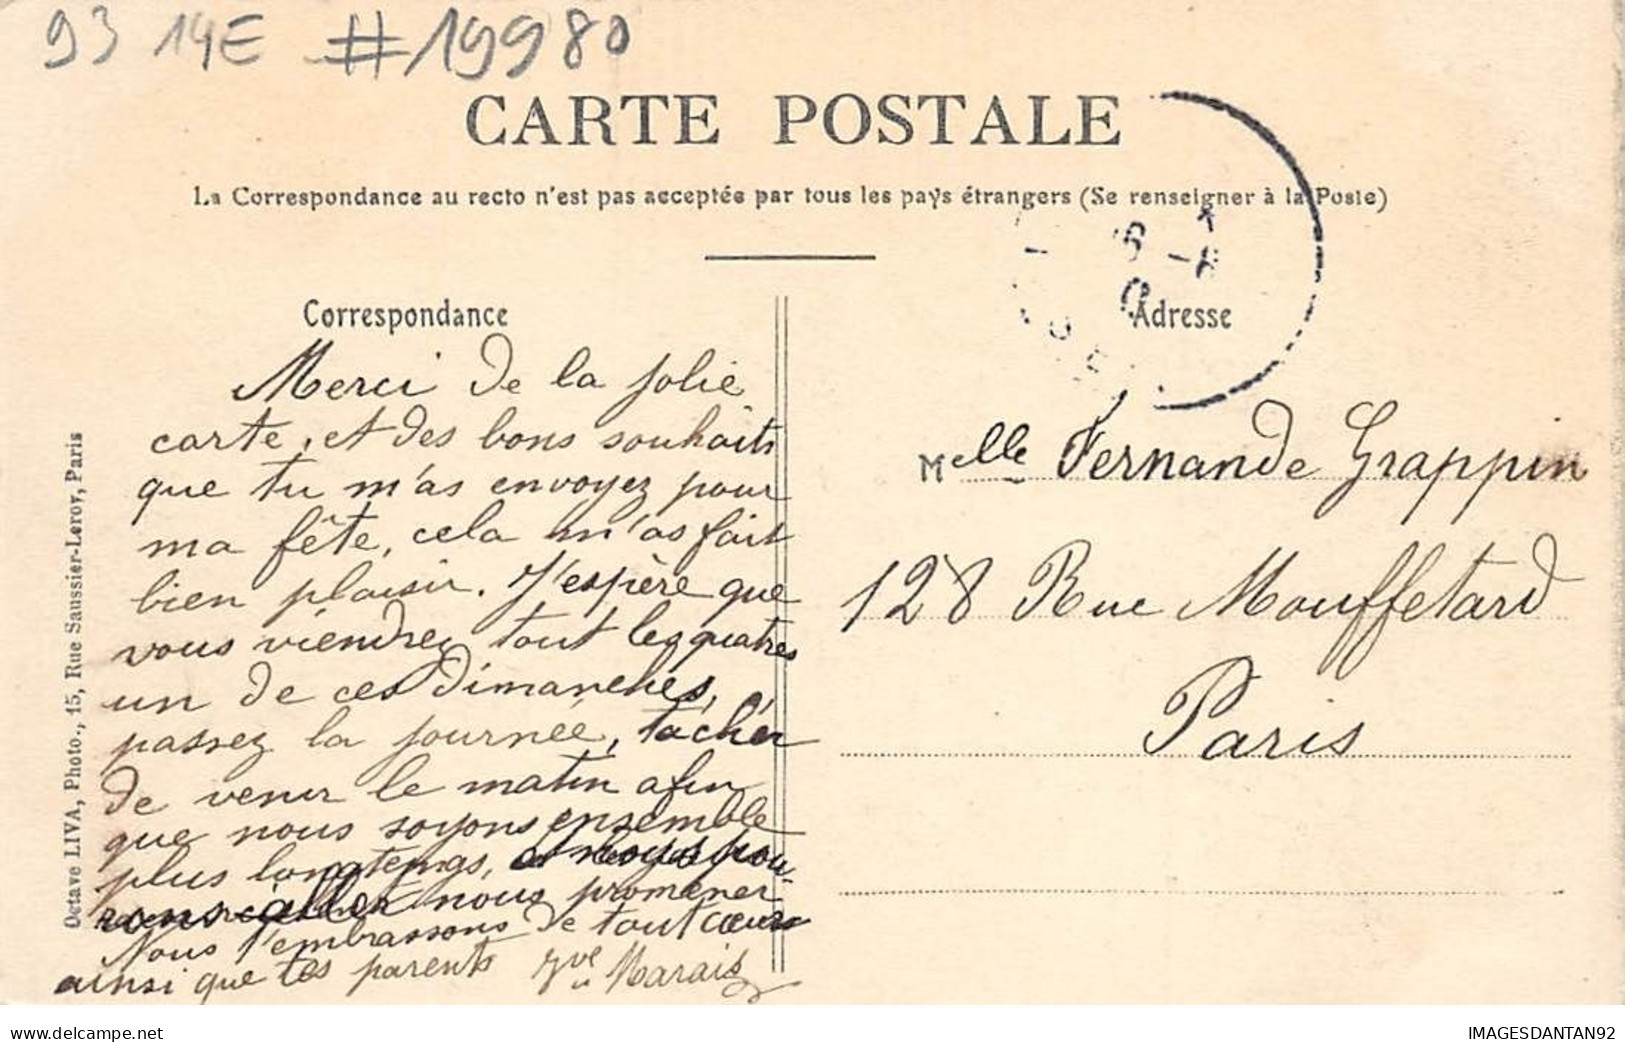 93 14E #19980
CARTE POSTALE
La Correspondance au recto n'est pas acceptée par tous les pays étrangers (Se renseigner à la Poste)
Correspondance
Merci de la jolie
carte, et des bons souhaits
que tu m'as envoyez pour
ma fête, cela m'as fait
bien plaisir. J'espère que
vous viendrez tout les quatres
un de ces dimanches,
passez la journée, tacher
de venir le matin afin
que nous soyons ensemble
plus longtemps, et nous pou-
rons aller nous promener
Nous t'embrassons de tout cœurs
ainsi que tes parents Yve Marais
Octave LIVA, Photo., 15, Rue Saussier-Leroy, Paris
Adresse
Melle Fernande Grappin
128 Rue Mouffetard
Paris
www.delcampe.net
IMAGESDANTAN92